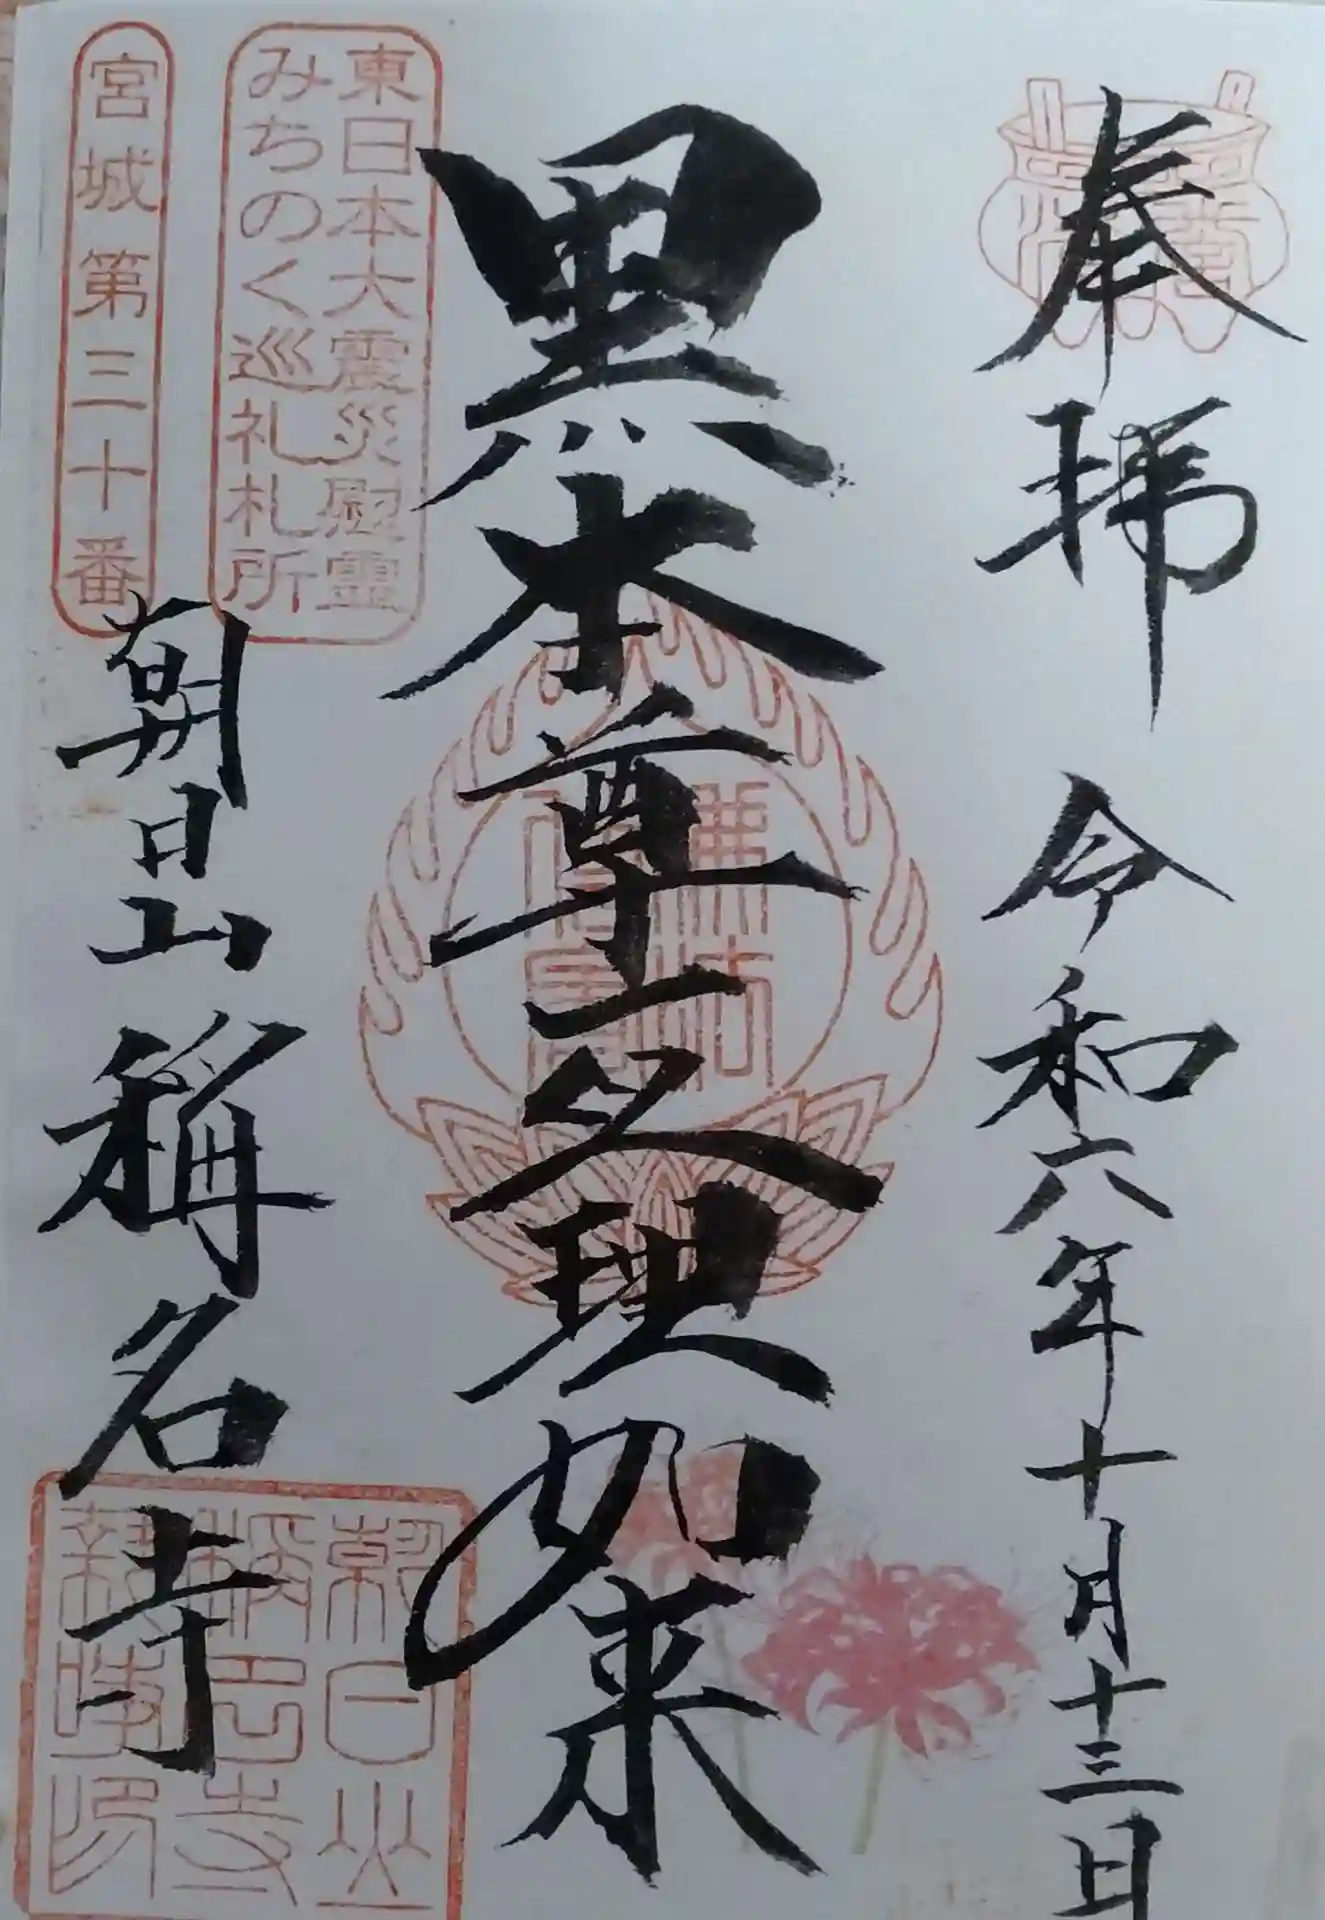 奉拝 令和六年十月十三日
黒本尊 之理如来
東日本大震災慰霊
みちのく巡礼札所
宮城第三十番
朝日山稱名寺
朝日山
稱名寺